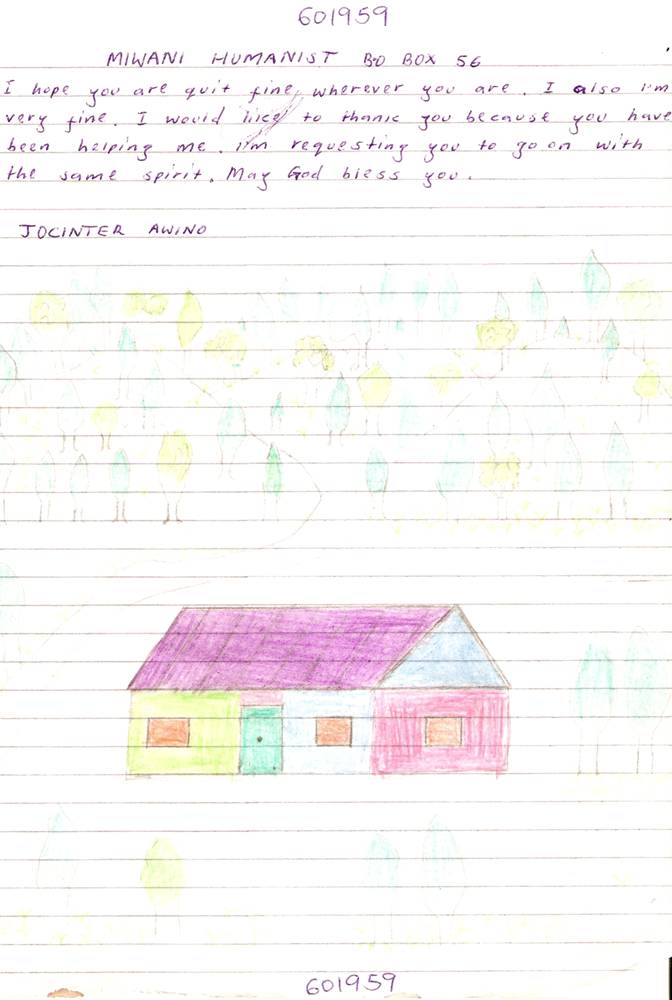 601959
MIWANI HUMANIST BO BOX 56
I hope you are quit fine, wherever you are. I also i'm
very fine. I would like to thank you because you have
been helping me. i'm requesting you to go on with
the same spirit. May God bless you.
JOCINTER AWINO
601959